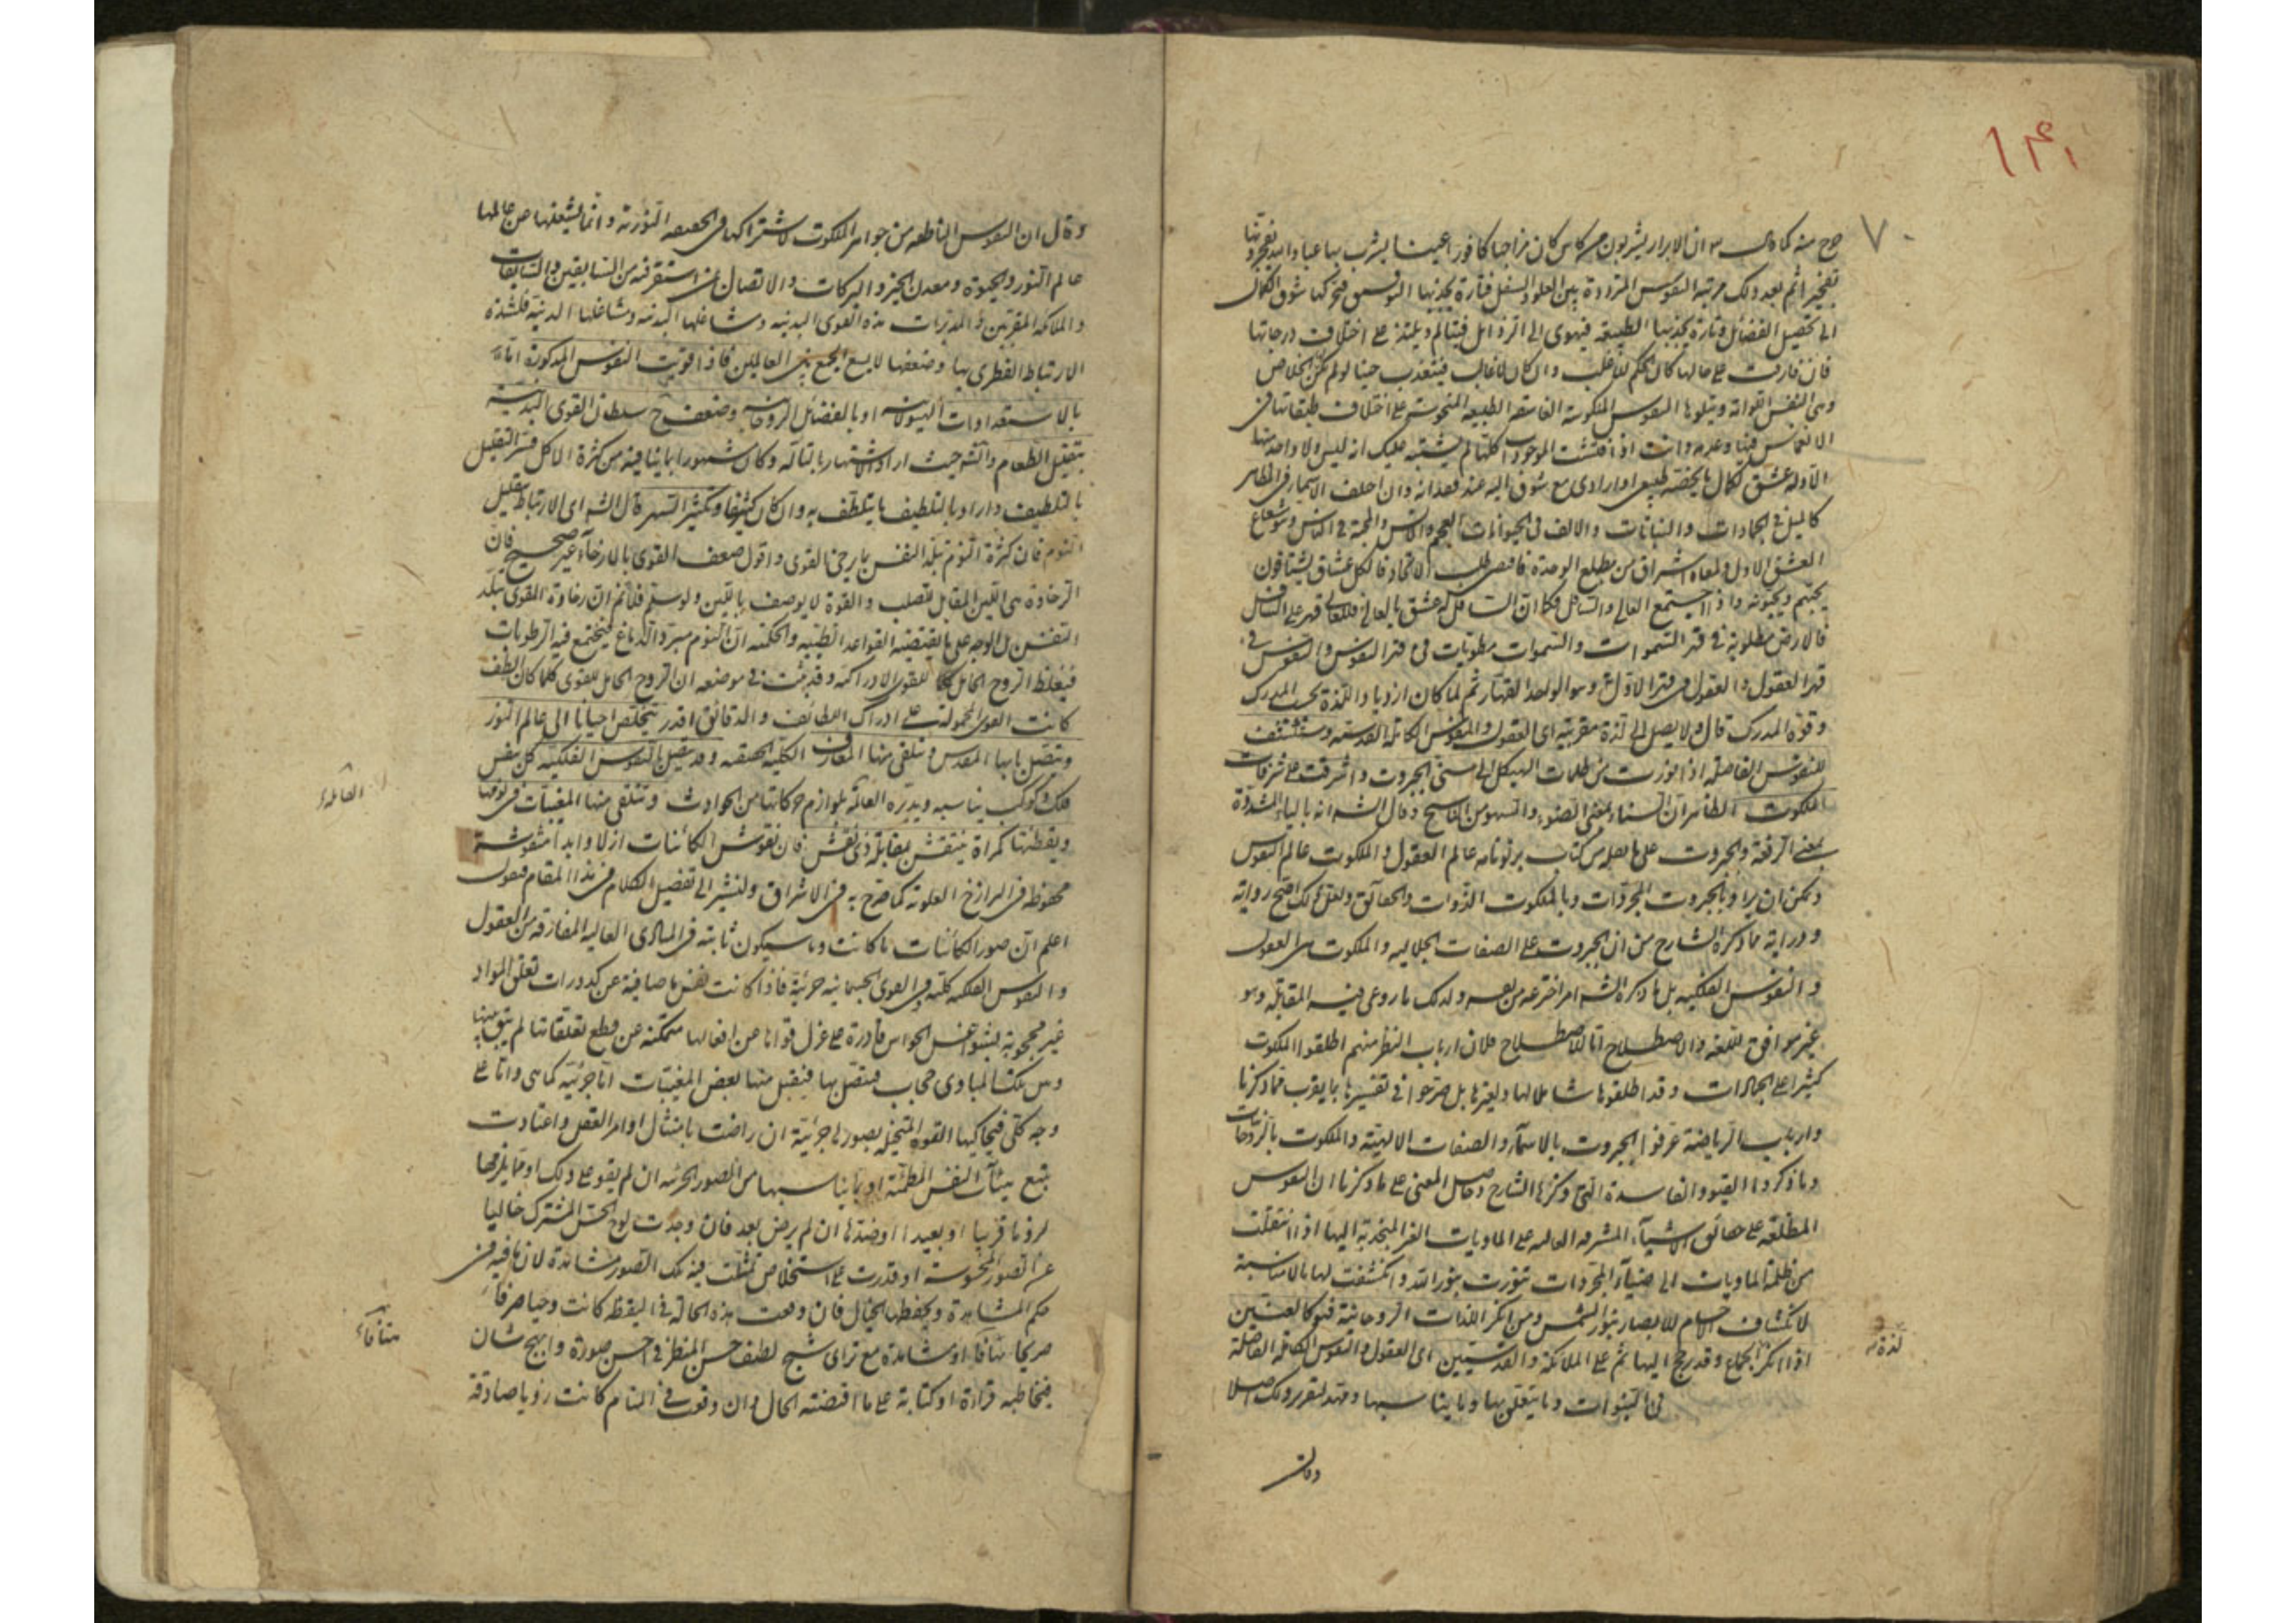 ١٤١
٧٠
منه كما قال ان الابرار يشربون من كاس كان مزاجها كافورا عينا يشرب بها عباد الله يفجرونها
تفجيرا ثم بعد ذلك مرتبة النفوس المترددة بين العلو والسفل فتارة يجذبها
الى تحصيل الفضائل وتارة يجذبها الطبيعة فيهوى الى الرذائل فيتالم ويلتذ على اختلاف درجاتها
فان فارقت على حالها كان الحكم للاغلب وان كان لا غالب فيتعذب حينا
وهى النفس اللوامة ويتلوها النفوس المنكوسة الطبيعة المنحوسة على اختلاف طبقاتها فى
الانغماس فيها وانت اذا فتشت الموجودات كلها لم يشتبه عليك انه ليس ولا واحد منها
الا وله عشق لكمال يخصه طبيعى او ارادى مع شوق اليه عند فقدانه وان اختلف الاسماء فى الظاهر
كالميل فى الجمادات والنباتات والالف فى الحيوانات العجم والانس والمحبة فى الناس وهو شعاع
العشق الاول اشراق من مطلع الوحدة طلب الاتحاد فالكل عشاق يشتاقون
يحبهم ويحبونه واذا اجتمع العالى والسافل فكما ان السافل له عشق بالعالى فللعالى قهر على السافل
فالارض مطوية فى قهر السموات والسموات مطويات فى قهر النفوس والنفوس فى
قهر العقول والعقول فى قهر الاول وهو الواحد القهار ثم لما كان ازدياد اللذة بحسب المدرك
وقوة المدرك قال ولا يصل الى لذة مقربيه اى العقول والنفوس الكاملة القدسية
للنفوس الفاضلة اذا من ظلمات الهيكل الى سنى الجبروت واشرقت على شرفات
الملكوت الظاهر ان السناء بمعنى الضوء والسهو من الناسخ وقال الش انه بالياء المشددة
بمعنى الرفعة والجبروت على ما نقله من كتاب پرتونامه عالم العقول والملكوت عالم النفوس
ويمكن ان يراد بالجبروت المجردات وبالملكوت الذوات والحقائق ولعل ذلك اصح رواية
ودراية مما ذكره الشارح من ان الجبروت على الصفات الجلالية والملكوت على العقول
والنفوس الفلكية بل ما ذكره الش امر اخترعه من نفسه ولذلك ما روعى فيه المقابلة وهو
غير موافق للغة والاصطلاح اما للاصطلاح فلان ارباب النظر منهم اطلقوا الملكوت
كثيرا على المجردات وقد اطلقوها شاملا لها ولغيرها بل صرحوا فى تفسيرها بما يقرب مما ذكرنا
وارباب الرياضة عرفوا الجبروت بالاسماء والصفات الالهية والملكوت بالروحانيات
وما ذكروا القيود الفاسدة التى ذكرها الشارح وحاصل المعنى على ما ذكرنا ان النفوس
المطلعة على حقائق الاشياء المشرفة العالية على الماديات الغير المنجذبة اليها اذا انتقلت
من ظلمة الماديات الى ضياء المجردات تنورت بنور الله وانكشفت لها بلا مناسبة
لانكشاف الاجسام للابصار بنور الشمس ومن انكر اللذات الروحانية فهو كالعنين
اذا انكر الجماع وقد رجح البهائم على الملائكة والقديسين اى العقول والنفوس الكاملة الفاضلة
لذة
فى النبوات وما يتعلق بها وما يناسبها ومهد لتقرير ذلك اصلا
وقال
وقال ان النفوس الناطقة من جواهر الملكوت لاشتراكها فى الحقيقة النورية وانما يشغلها عن عالمها
عالم النور والحيوة ومعدن الخير والبركات والاتصال من السابقين والسابقات
والملائكة المقربين والمدبرات هذه القوى البدنية ومشاغلها البدنية ومشاغلها الدنية فلشدة
الارتباط الفطرى بها وضعفها لا يسع الجمع بين العالمين فاذا قويت النفوس المذكورة اما
بالاستعدادات الهيولانية او بالفضائل الروحانية وضعف سلطان القوى البدنية
بتقليل الطعام والش حيث اراد الاشتهار بالتاله وكان مشهورا بما ينافيه من كثرة الاكل فسر التقليل
بالتلطيف واراد بالتلطيف ما يتلطف به وان كان كثيرا وتكثير السهر قال الش اى الارتباط بتقليل
النوم فان كثرة النوم تبلد النفس بارخاء القوى واقول ضعف القوى بالارخاء غير صحيح فان
الرخاوة هى اللين المقابل للصلب والقوة لا يوصف باللين ولو سلم فلا نم ان رخاوة القوى تبلد
النفس بل الوجه على ما يقتضيه القواعد الطبية والحكمية ان النوم مبرد الدماغ فيجتمع فيه الرطوبات
فيغلظ الروح الحامل للقوى الادراكية وقد ثبت فى موضعه ان الروح الحامل للقوى كلما كان الطف
كانت القوى المحمولة على ادراك اللطائف والدقائق اقدر تتخلص احيانا الى عالم النور
وتتصل بابيها المقدس وتتلقى منها المعارف الكلية الحقيقية وقد تتصل بالنفوس الفلكية كل نفس
فلك وكوكب يناسبه ويدبره العالمة بلوازم حركاتها من الحوادث وتتلقى منها المغيبات فى نومها
العالمة
ويقظتها كمرآة ينتقش بمقابلة ذى نقش فان نقوش الكائنات ازلا وابدا منقوشة
محفوظة فى البرازخ العلوية كما صرح به فى الاشراق ولنشر الى تفصيل الكلام فى هذا المقام فنقول
اعلم ان صور الكائنات ما كانت وما سيكون ثابتة فى المبادى العالية المفارقة من العقول
والنفوس الفلكية كلية وفى القوى الجسمانية جزئية فاذا كانت نفس ما صافية عن كدورات تعلق المواد
غير محجوبة بشواغل الحواس قادرة على عزل قواها عن افعالها متمكنة من قطع تعلقاتها لم يبق بينها
وبين تلك المبادى حجاب فيتصل بها فيقبل منها بعض المغيبات اما جزئية كما هى واما على
وجه كلى فيحاكيها القوة المتخيلة بصور جزئية ان راضت بامتثال اوامر العقل واعتادت
بتبع هيئات النفس المطمئنة او بما يناسبها من الصور الجزئية ان لم يقو على ذلك او بما يلزمها
لزوما قريبا او بعيدا او ضدها ان لم يرض بعد فان وجدت لوح الحس المشترك خاليا
عن الصور المحسوسة او قدرت على استخلاص تمثلت فيه تلك الصور مشاهدة لان ما فيه فى
حكم المشاهدة ويحفظها الخيال فان وقعت هذه الحالة فى اليقظة كانت وحيا صرفا
صريحا شفاها او مشاهدة مع ترائى شبح لطيف حسن المنظر فى احسن صورة وابهج شان
فيخاطبه قراءة او كتابة على ما اقتضته الحال وان وقعت فى المنام كانت رؤيا صادقة